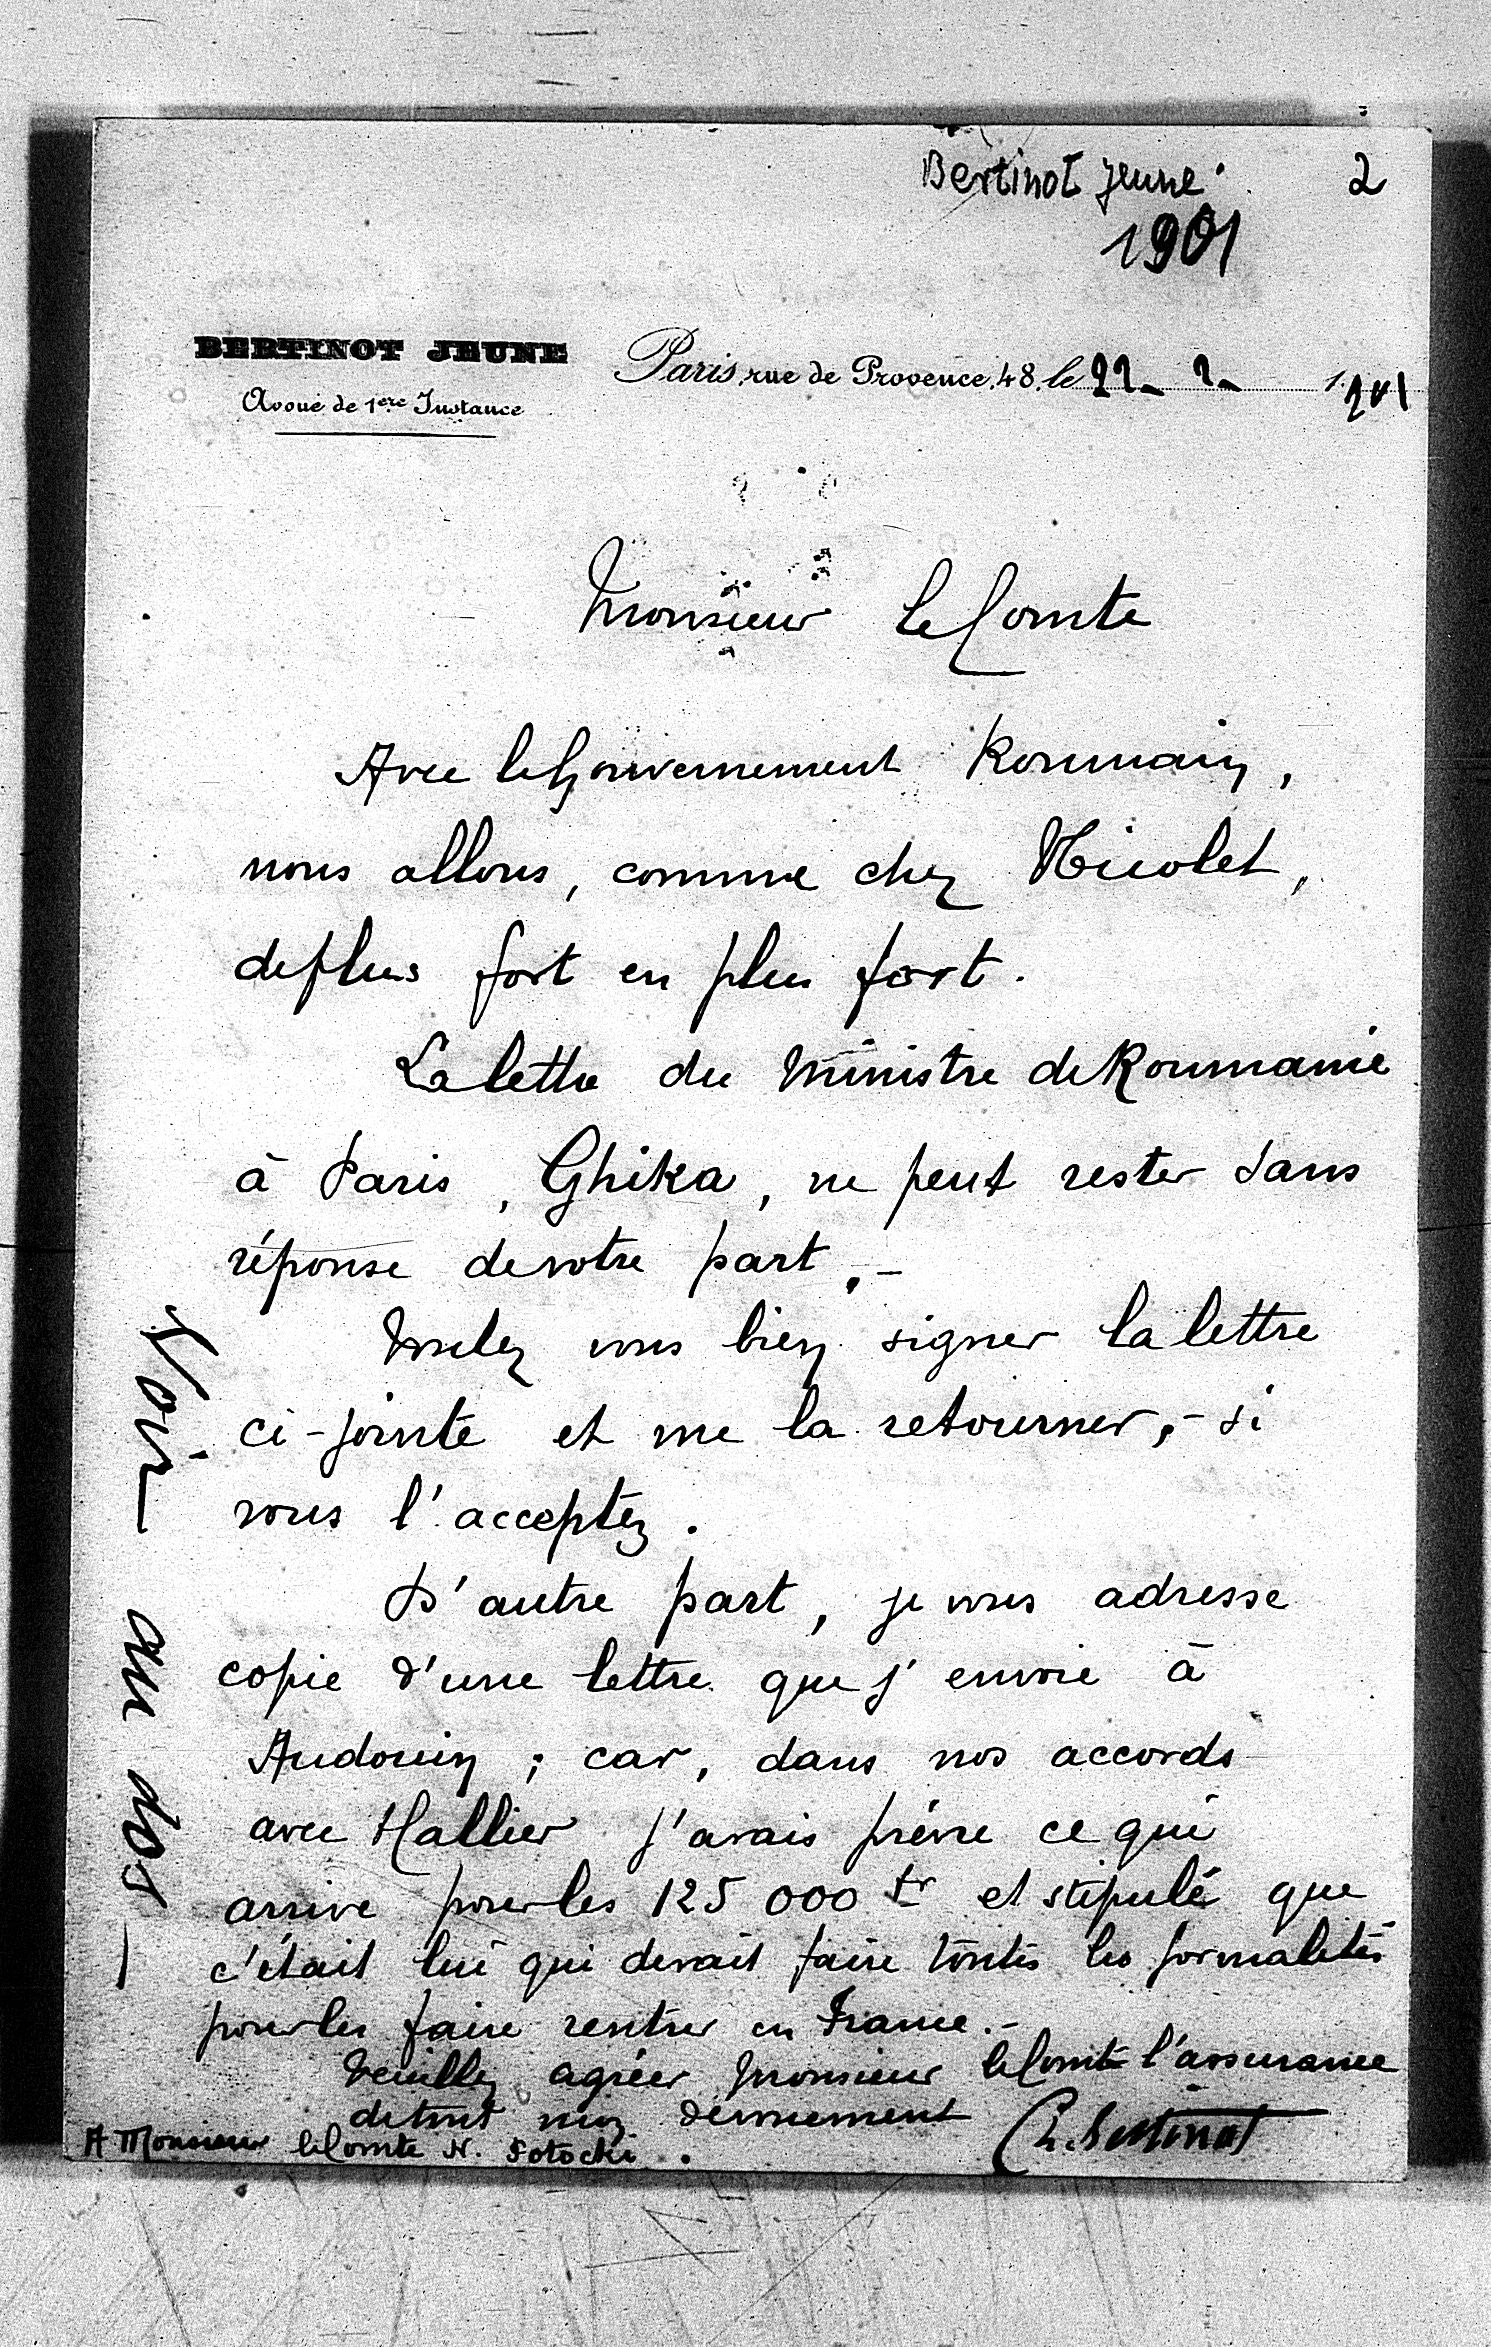 Bertinot Jeune. 2
1901
BERTINOT JEUNE
Avoué de 1ère Instance
Paris, rue de Provence, 48, le 22 - 2 - 1901
Monsieur le Comte
Avec le Gouvernement Roumain,
nous allons, comme chez Nicolet,
de plus fort en plus fort.
La lettre du Ministre de Roumanie
à Paris, Ghika, ne peut rester sans
réponse de votre part. -
Voulez vous bien signer la lettre
ci-jointe et me la retourner, - si
vous l'acceptez.
D'autre part, je vous adresse
copie d'une lettre que j'envoie à
Audouin ; car, dans nos accords
avec Hallier j'avais prévu ce qui
arrive pour les 125 000 fr et stipulé que
c'était lui qui devait faire toutes les formalités
pour les faire rentrer en France. -
Veuillez agréer Monsieur le Comte l'assurance
de tout mon dévouement Ch. Bertinot
A Monsieur le Comte N. Potocki.
Voir au dos -